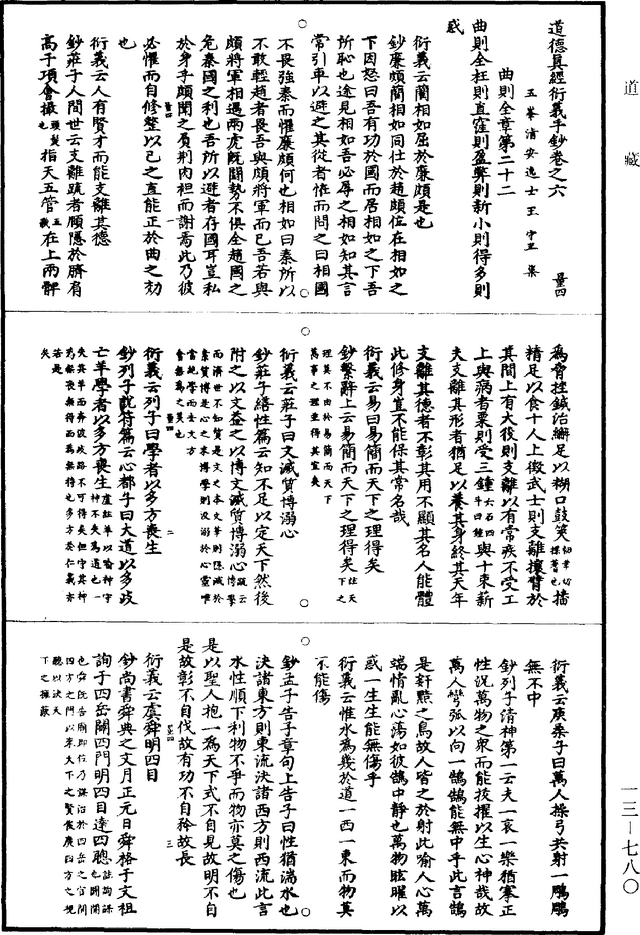 道德真經衍義手鈔卷之六 量四
五峯清安逸士王守正集
曲則全章第二十二
曲則全枉則直窪則盈弊則新小則得多則
惑
衍義云藺相如屈於廉頗是也
鈔廉頗藺相如同仕於趙頗位在相如之
下因怒曰吾有功於國而居相如之下吾
所恥也途見相如吾必辱之相如知其言
常引車以避之其從者恠而問之曰相國
不畏強秦而懼廉頗何也相如曰秦所以
不敢輕趙者畏吾與頗將軍而已吾若與
頗將軍相遇兩虎既鬭勢不俱全趙國之
危秦國之利也吾所以避者存國耳豈私
於身乎頗聞之負荊肉袒而謝焉此乃彼
必懼而自修整以己之直能正於曲之効
也
衍義云人有賢才而能支離其德
鈔莊子人間世云支離疏者頤隱於臍肩
高于項會撮指天五管在上兩髀
為脅挫鍼治繲足以糊口鼓筴播
精足以食十人上徵武士則支離攘臂於
其間上有大役則支離以有常疾不受工
上與病者粟則受三鍾與十束薪
夫支離其形者猶足以養其身終其天年
支離其德者不彰其用不顯其名人能體
此修身豈不能保其常名哉
衍義云易曰易簡而天下之理得矣
鈔繫辭上云易簡而天下之理得矣
衍義云莊子曰文滅質博溺心
鈔莊子繕性篇云知不足以定天下然後
附之以文益之以博文滅質博溺心
衍義云列子曰學者以多方喪生
鈔列子說符篇云心都子曰大道以多歧
亡羊學者以多方喪生
衍義云庚桑子曰萬人操弓共射一鵰鵰
無不中
鈔列子清神第一云夫一哀一樂猶搴正
性況萬物之衆而能拔擢以生心神哉故
萬人彎弧以向一鵠鵠能無中乎此言鵠
是釬㸃之鳥故人皆之於射此喻人心萬
端情亂心蕩如彼鵠中靜也萬物眩曜以
惑一生生能無傷乎
衍義云惟水為幾於道一西一東而物莫
不能傷
鈔孟子告子章句上告子曰性猶湍水也
決諸東方則東流決諸西方則西流此言
水性順下利物不爭而物亦莫之傷也
是以聖人抱一為天下式不自見故明不自
是故彰不自伐故有功不自矜故長
衍義云虞舜明四目
鈔尚書舜典之文月正元日舜格于文祖
詢于四岳闢四門明四目達四聰
道藏
一三—七八〇